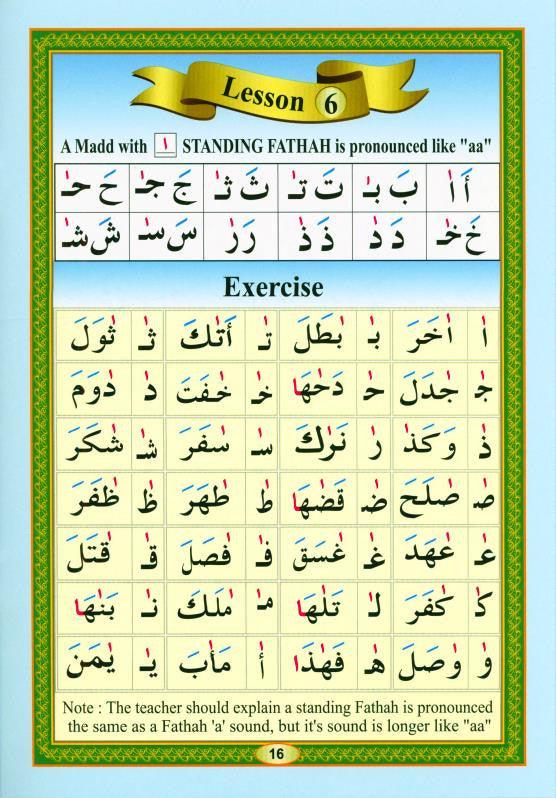 Lesson 6
A Madd with ا STANDING FATHAH is pronounced like "aa"
أَ اٰ بَ بٰـ تَ تٰـ ثَ ثٰـ جَ جٰـ حَ حٰـ
خَ خٰـ دَ دٰ ذَ ذٰ رَ رٰ سَ سٰـ شَ شٰـ
Exercise
اٰ اٰخَرَ بٰـ بٰطَلَ تٰـ أَتٰكَ ثٰـ ثٰوَلَ
جٰـ جٰدَلَ حٰـ دَحٰهَا خٰـ خٰفَتَ دٰ دٰوَمَ
ذٰ وَكَذٰ رٰ نَرٰكَ سٰـ سٰفَرَ شٰـ شٰكَرَ
صٰـ صٰلَحَ ضٰـ قَضٰهَا طٰ طٰهَرَ ظٰ ظٰفَرَ
عٰـ عٰهَدَ غٰـ غٰسَقَ فٰـ فٰصَلَ قٰـ قٰتَلَ
كٰـ كٰفَرَ لٰـ تَلٰهَا مٰـ مٰلَكَ نٰـ بَنٰهَا
وٰ وٰصَلَ هٰـ فَهٰذَا أٰ مَأٰبَ يٰـ يٰمَنَ
Note : The teacher should explain a standing Fathah is pronounced
the same as a Fathah 'a' sound, but it's sound is longer like "aa"
16